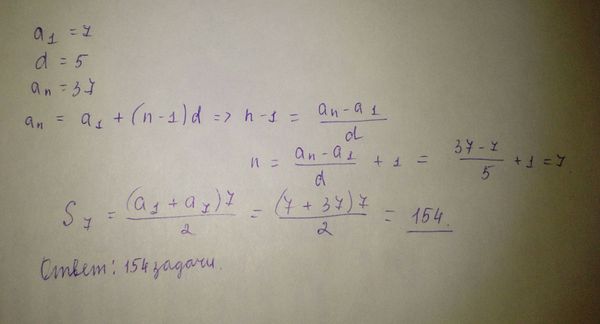 a₁ = 7
d = 5
aₙ = 37
aₙ = a₁ + (n-1)d => n-1 = (aₙ - a₁)/d
n = (aₙ - a₁)/d + 1 = (37-7)/5 + 1 = 7.
S₇ = (a₁ + a₇)7/2 = (7 + 37)7/2 = 154.
Ответ: 154 задачи.